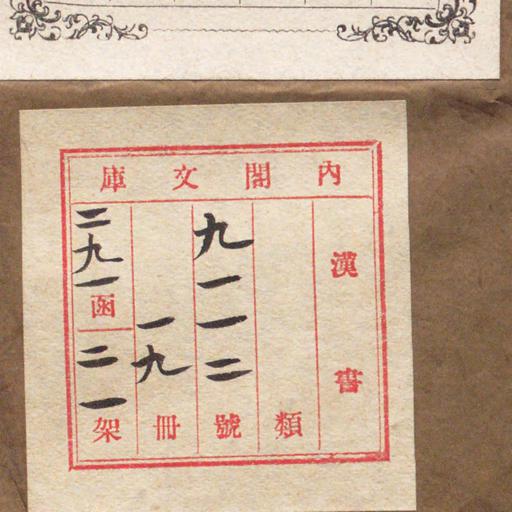 內閣文庫
漢書
類
九一一二號
一九冊
二九一函
二一架